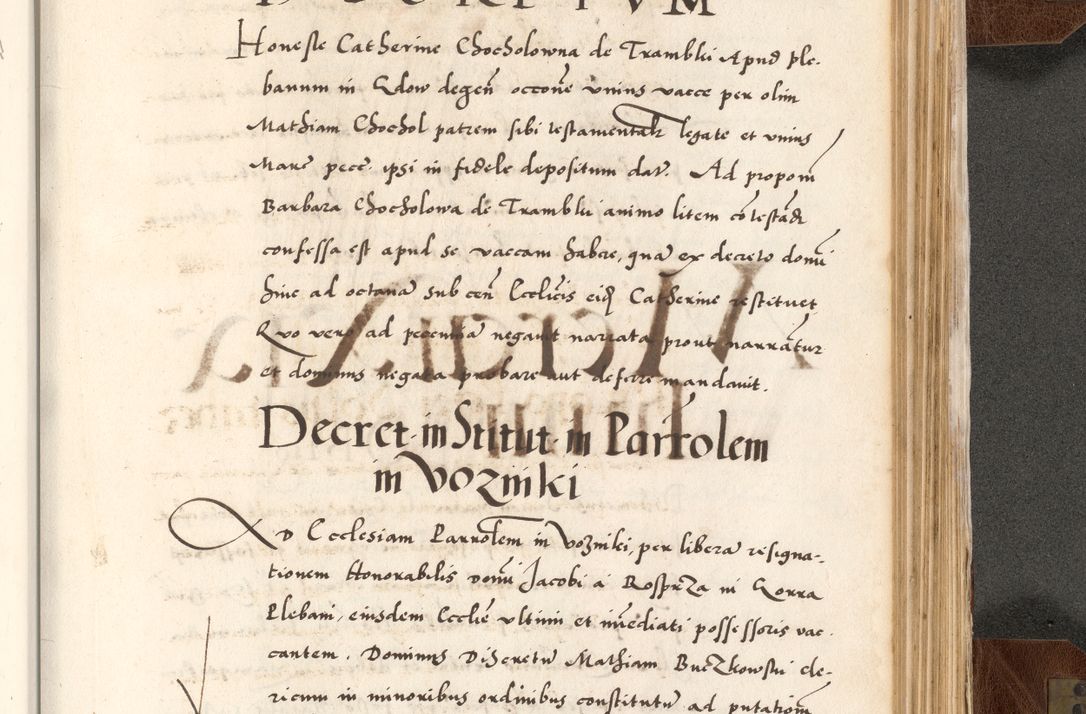 Honeste Catherine Chocholowna de Tramblki Apud ple-
banum in Gdow degeñ occõne unius vacce per olim
Mathiam Chochol patrem sibi testamentalr legate et unius
Marc pecc ipsi in fidele depositum dat. Ad proponi
Barbara Chocholowa de Tramblki animo litem cõtestãdi
confessa est apud se vaccam habere, quã ex decreto domi
hinc ad octauã sub ceñ Eccliẽis eid Catherine restituet
Quo vero ad pecuniã negauit narrata prout narrãtur
et dominus negata probare aut deferre mandauit.
Decret in Stitut in Parrolem
in Vozniki
AD Ecclesiam Parrolem in Vozniki, per liberã resigna-
tionem Honorabilis domi Jacobi a Rosprza in Gorra
Plebani, eiusdem Ecclie ultimi et imediati possessoris vac-
cantem. Dominus Discretu Mathiam Buczkowski cle-
ricum in minoribus ordinibus constitutu ad putationem